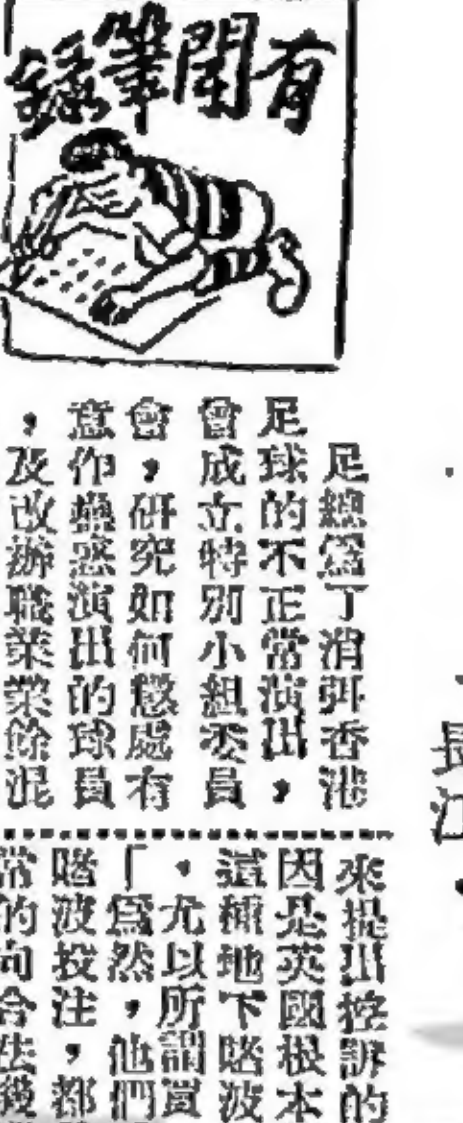 有聞筆錄
足總爲了消弭香港
足球的不正常演出，
曾成立特別小組委員
會，研究如何懲處有
意作蠱惑演出的球員
，及改辦職業業餘混
來提出控訴的
因是英國根本
這種地下賭波
，尤以所謂
「爲然，他們
賭波投注，都
常的向合法
長江，